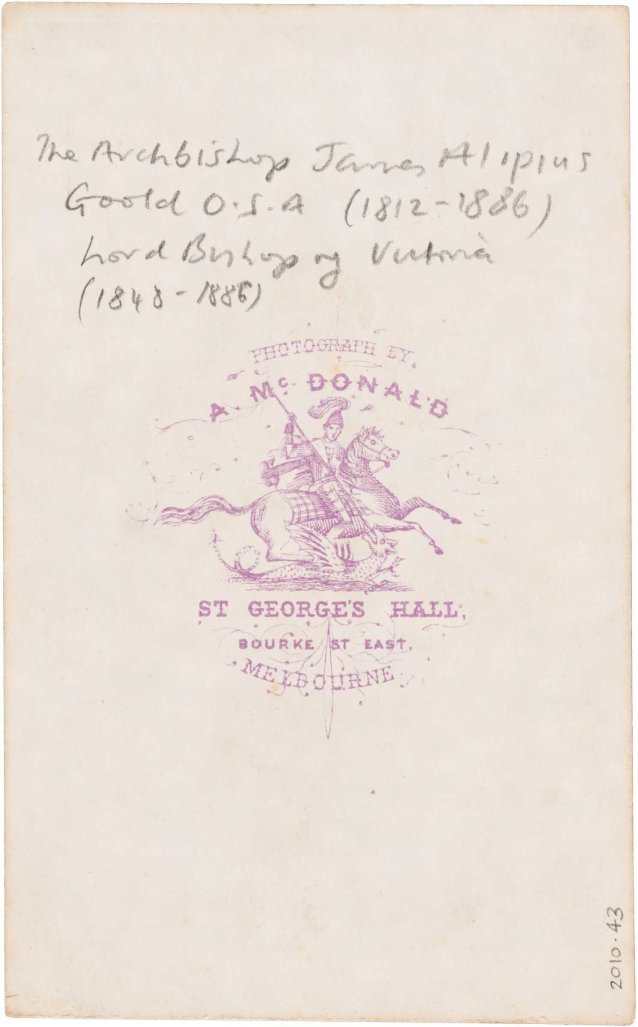 The Archbishop James Alipius
Goold O.S.A (1812-1886)
Lord Bishop of Victoria
(1848-1886)
PHOTOGRAPH BY.
A. McDONALD
ST GEORGE'S HALL,
BOURKE ST EAST.
MELBOURNE
2010.43